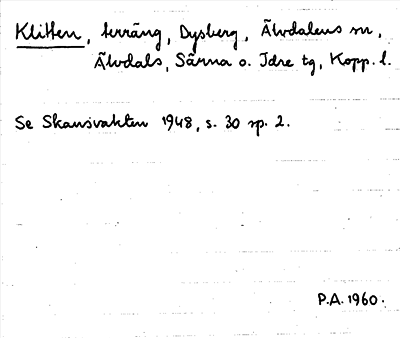 Klitten, terräng, Dysberg, Älvdalens sn,
Älvdals, Särna o. Idre tg, Kopp. l.
Se Skansvakten 1948, s. 30 sp. 2.
P.A. 1960.